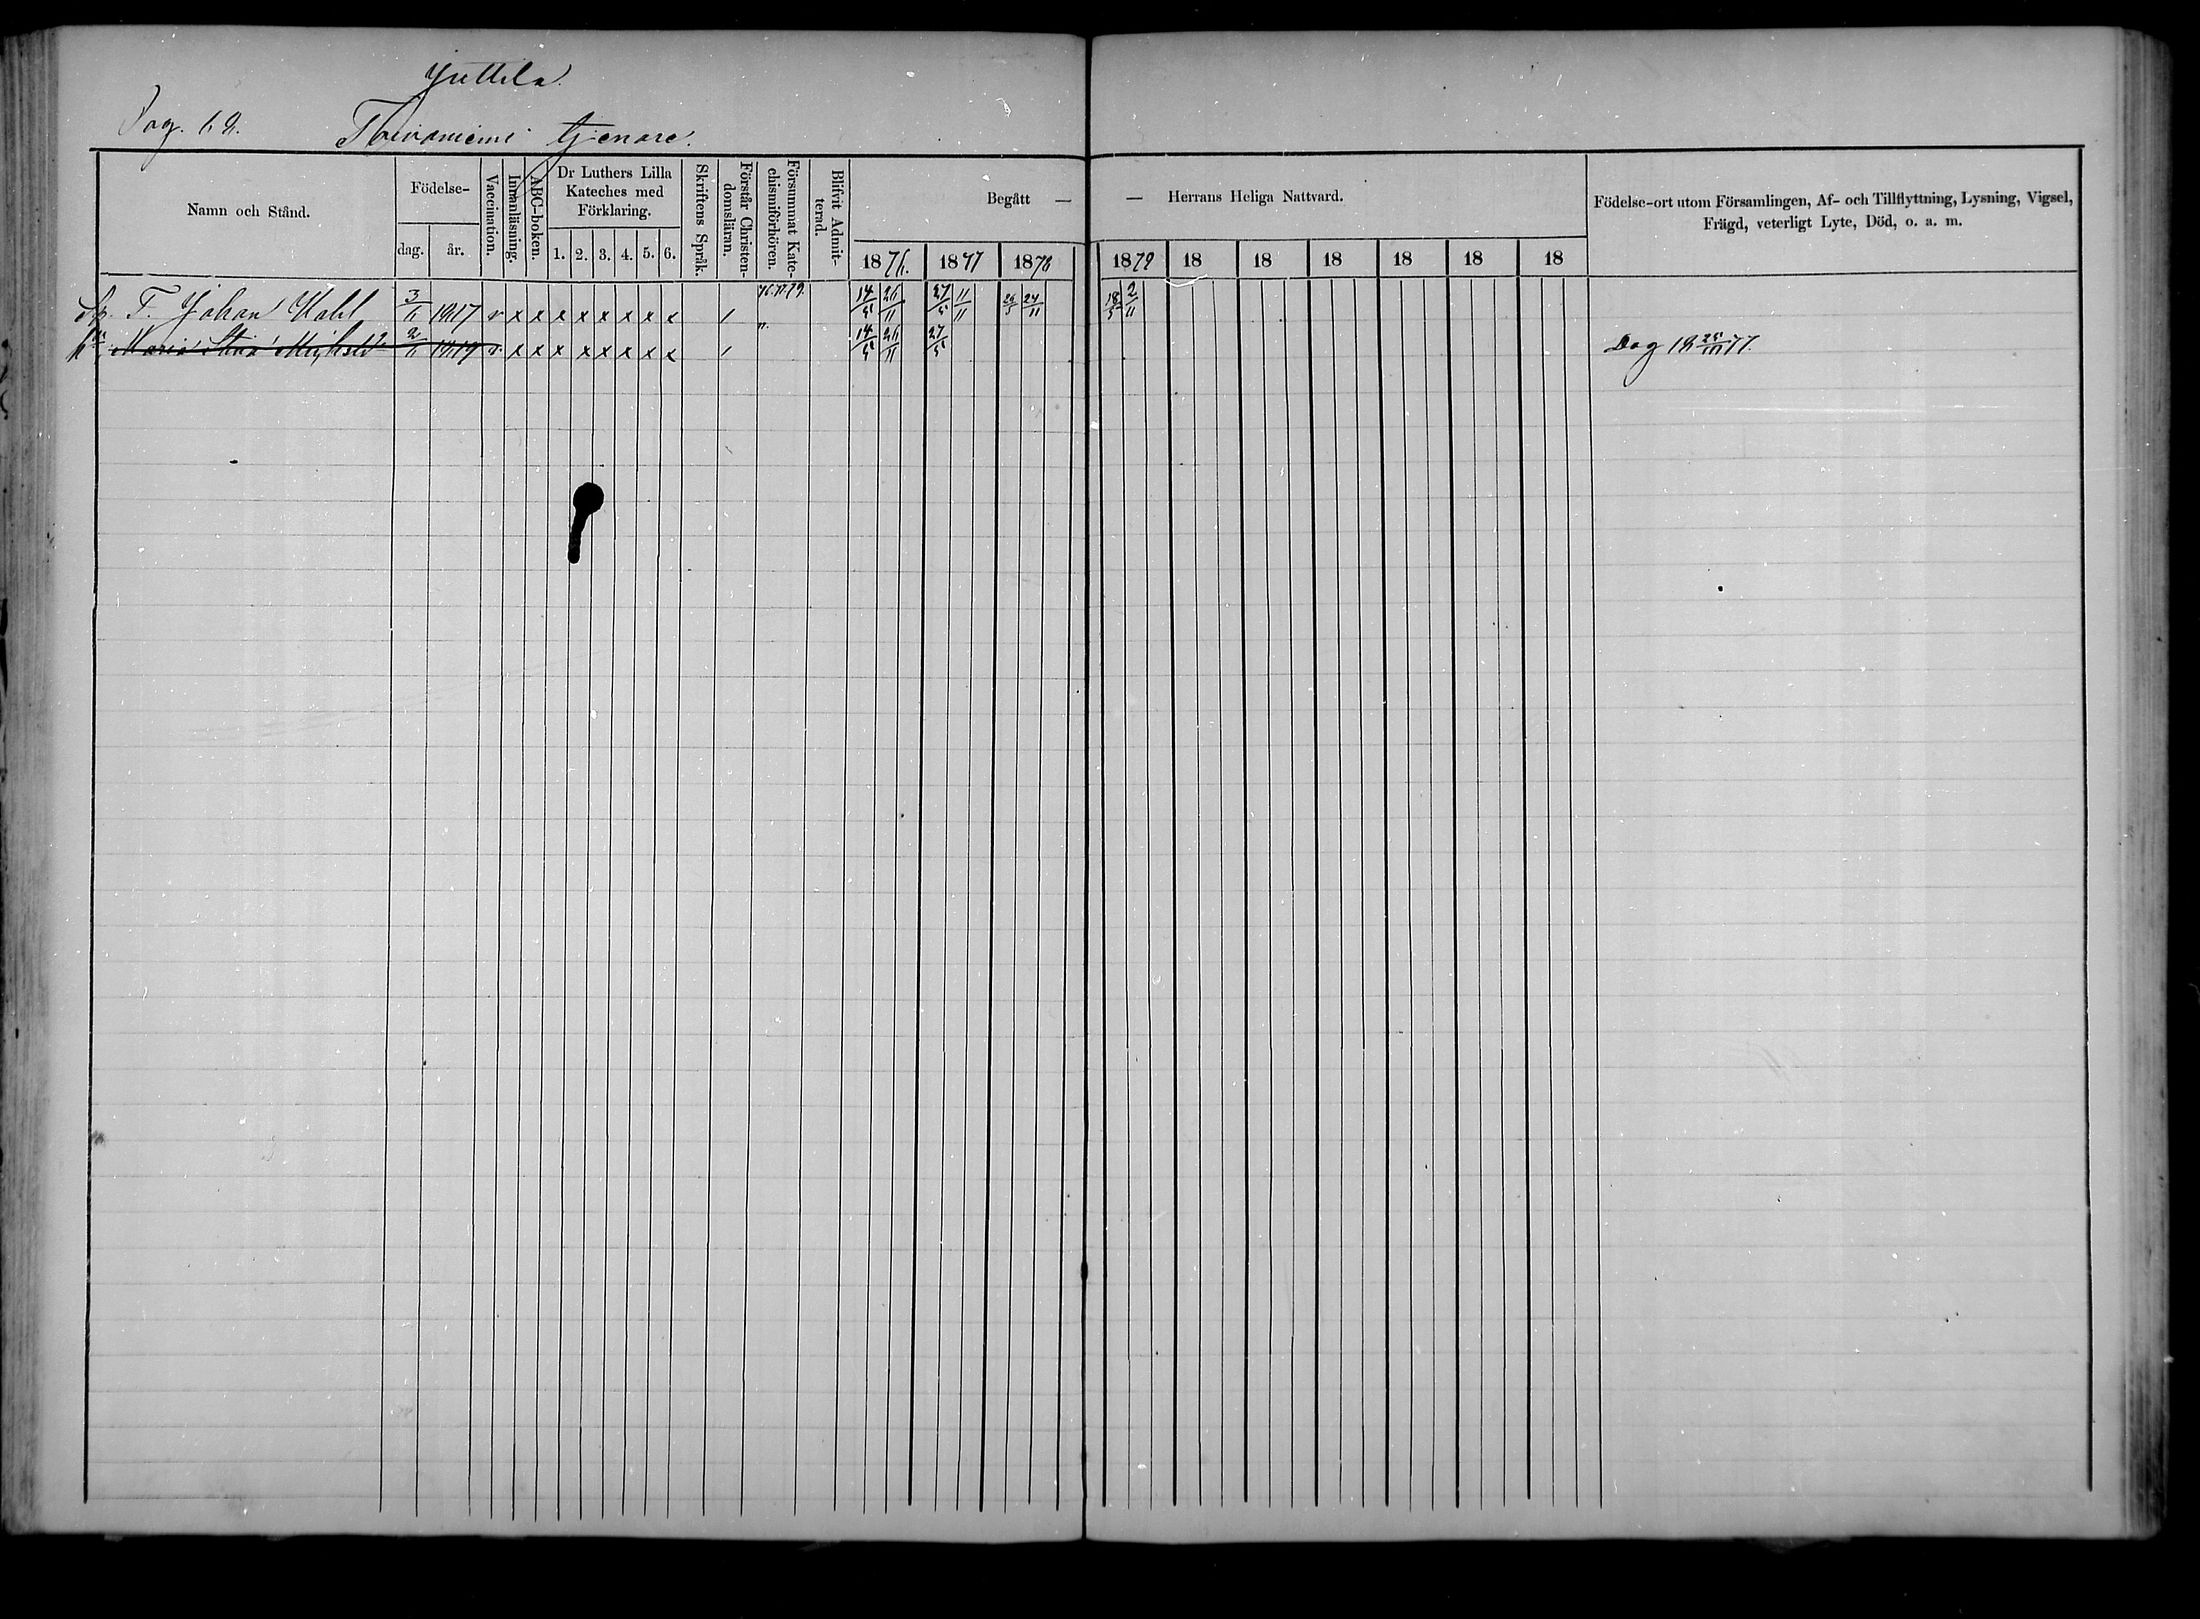 Juttila.
Pag. 12.
tjenare.
Namn och Stånd.
Födelse-
dag.
år.
Vaccination.
Innanläsning.
ABC-boken.
Dr Luthers Lilla Kateches med Förklaring.
1. 2. 3. 4. 5. 6.
Skriftens Språk.
Förstår Christendomsläran.
Försummat Katechismiförhören.
Blifvit Admitterad.
Begått — — Herrans Heliga Nattvard.
1876. 1877 1878 1879 18 18 18 18 18 18
Födelse-ort utom Församlingen, Af- och Tillflyttning, Lysning, Vigsel,
Frägd, veterligt Lyte, Död, o. a. m.
F. Johan 3/1 1817 v x x x x x x x x / 14/5 26/11 27/5 11/11 26/5 24/11 18/5 2/11
Maria Stina 2/1 1819 v x x x x x x x x / 14/5 26/11 27/5 77.